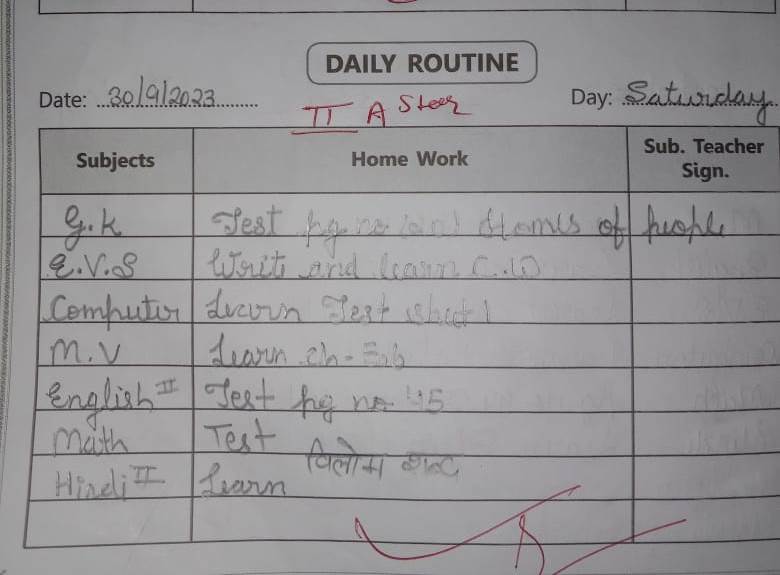 DAILY ROUTINE
Date: 30/9/2023 Day: Saturday
II A Steer
Subjects Home Work Sub. Teacher Sign.
G.K Test pg no of people
E.V.S Write and learn C.W
Computer Learn Test sheet 1
M.V Learn ch-
English II Test pg no 45
Math Test
Hindi II Learn विलोम शब्द